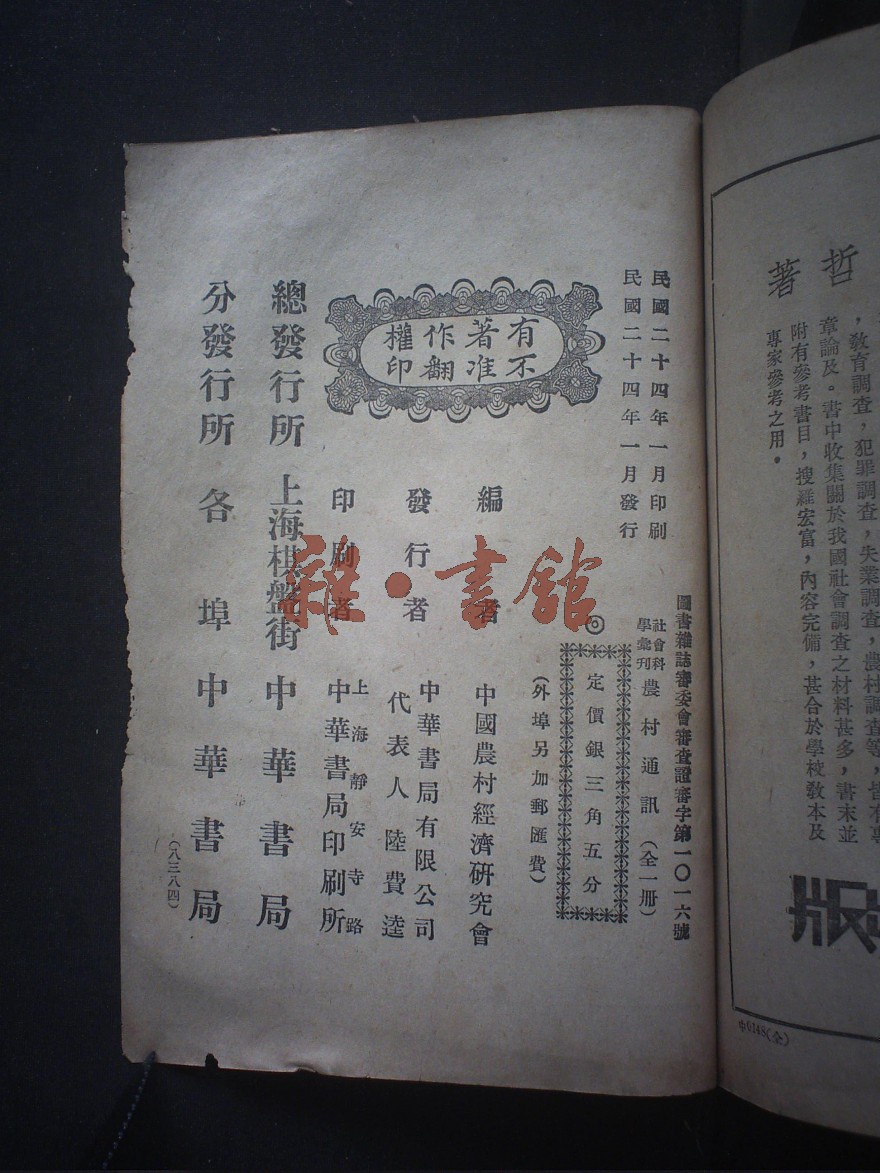 民國二十四年一月印刷
民國二十四年一月發行
圖書雜誌審委會審查證審字第一〇一六號
社會科學彙刊
農村通訊(全一册)
◎定價銀三角五分
(外埠另加郵匯費)
有著作權
不准翻印
編者 中國農村經濟研究會
發行者 中華書局有限公司
代表人 陸費逵
印刷者 上海靜安寺路
中華書局印刷所
總發行所 上海棋盤街 中華書局
分發行所 各埠 中華書局
(八三八四)
雜·書館
哲
著
,教育調查,犯罪調查,失業調查,農村調查等,皆有專
章論及。書中收集關於我國社會調查之材料甚多,書末並
附有參考書目,搜羅宏富,內容完備,甚合於學校教本及
專家參考之用。
版